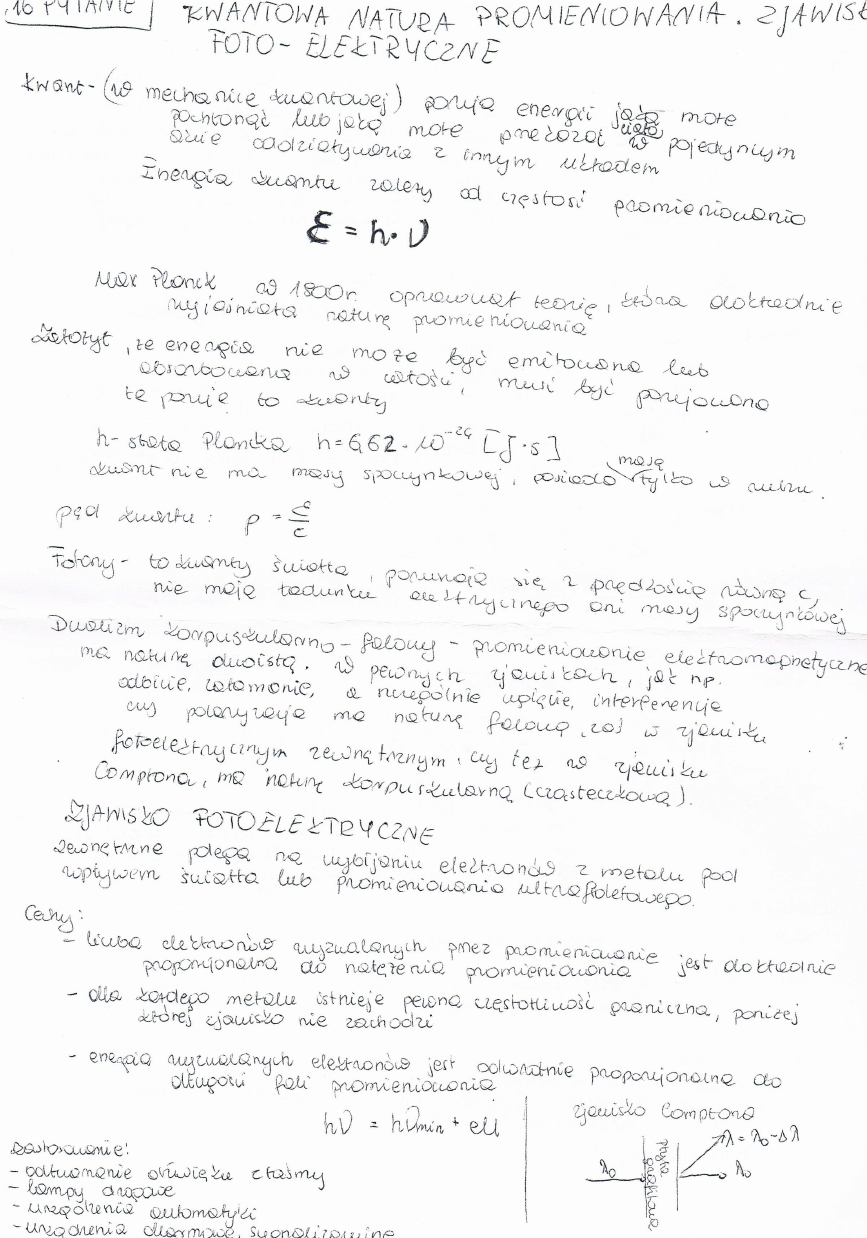 16 PYTANIE KWANTOWA NATURA PROMIENIOWANIA. ZJAWISK
FOTO-ELEKTRYCZNE
Kwant - (w mechanice kwantowej) porcja energii jaką może
pochłonąć lub jaką może przekazać ciało w pojedynczym
akcie oddziaływania z innym układem
Energia kwantu zależy od częstość promieniowania
ℰ = h·ν
Max Planck w 1800r. opracował teorię, która dokładnie
wyjaśniała naturę promieniowania
Założył, że energia nie może być emitowana lub
absorbowana w całości, musi być porcjowana
te porcje to kwanty
h- stała Plancka h=6,62·10⁻²⁴ [J·s]
kwant nie ma masy spoczynkowej, posiada masę tylko w ruchu.
pęd kwantu: p = ℰ/c
Fotony - to kwanty światła, poruszają się z prędkością równą c,
nie mają ładunku elektrycznego ani masy spoczynkowej
Dualizm korpuskularno-falowy - promieniowanie elektromagnetyczne
ma naturę dwoistą. W pewnych zjawiskach, jak np.
odbicie, załamanie, a szczególnie ugięcie, interferencja
czy polaryzacja ma naturę falową, zaś w zjawisku
fotoelektrycznym zewnętrznym, czy też w zjawisku
Comptona, ma naturę korpuskularną (cząsteczkową).
ZJAWISKO FOTOELEKTRYCZNE
Zewnętrzne polega na wybijaniu elektronów z metalu pod
wpływem światła lub promieniowania ultrafioletowego.
Cechy:
- liczba elektronów wyzwalanych przez promieniowanie jest dokładnie
proporcjonalna do natężenia promieniowania
- dla każdego metalu istnieje pewna częstotliwość graniczna, poniżej
której zjawisko nie zachodzi
- energia wyzwalanych elektronów jest odwrotnie proporcjonalna do
długości fali promieniowania
hν = hνmin + eU
zjawisko Comptona
λ = λ₀-Δλ
λ₀
płyta grafitowa
λ₀
Zastosowanie:
- odtwarzanie dźwięku z taśmy
- lampy
- urządzenia automatyki
- urządzenia alarmowe, sygnalizacyjne